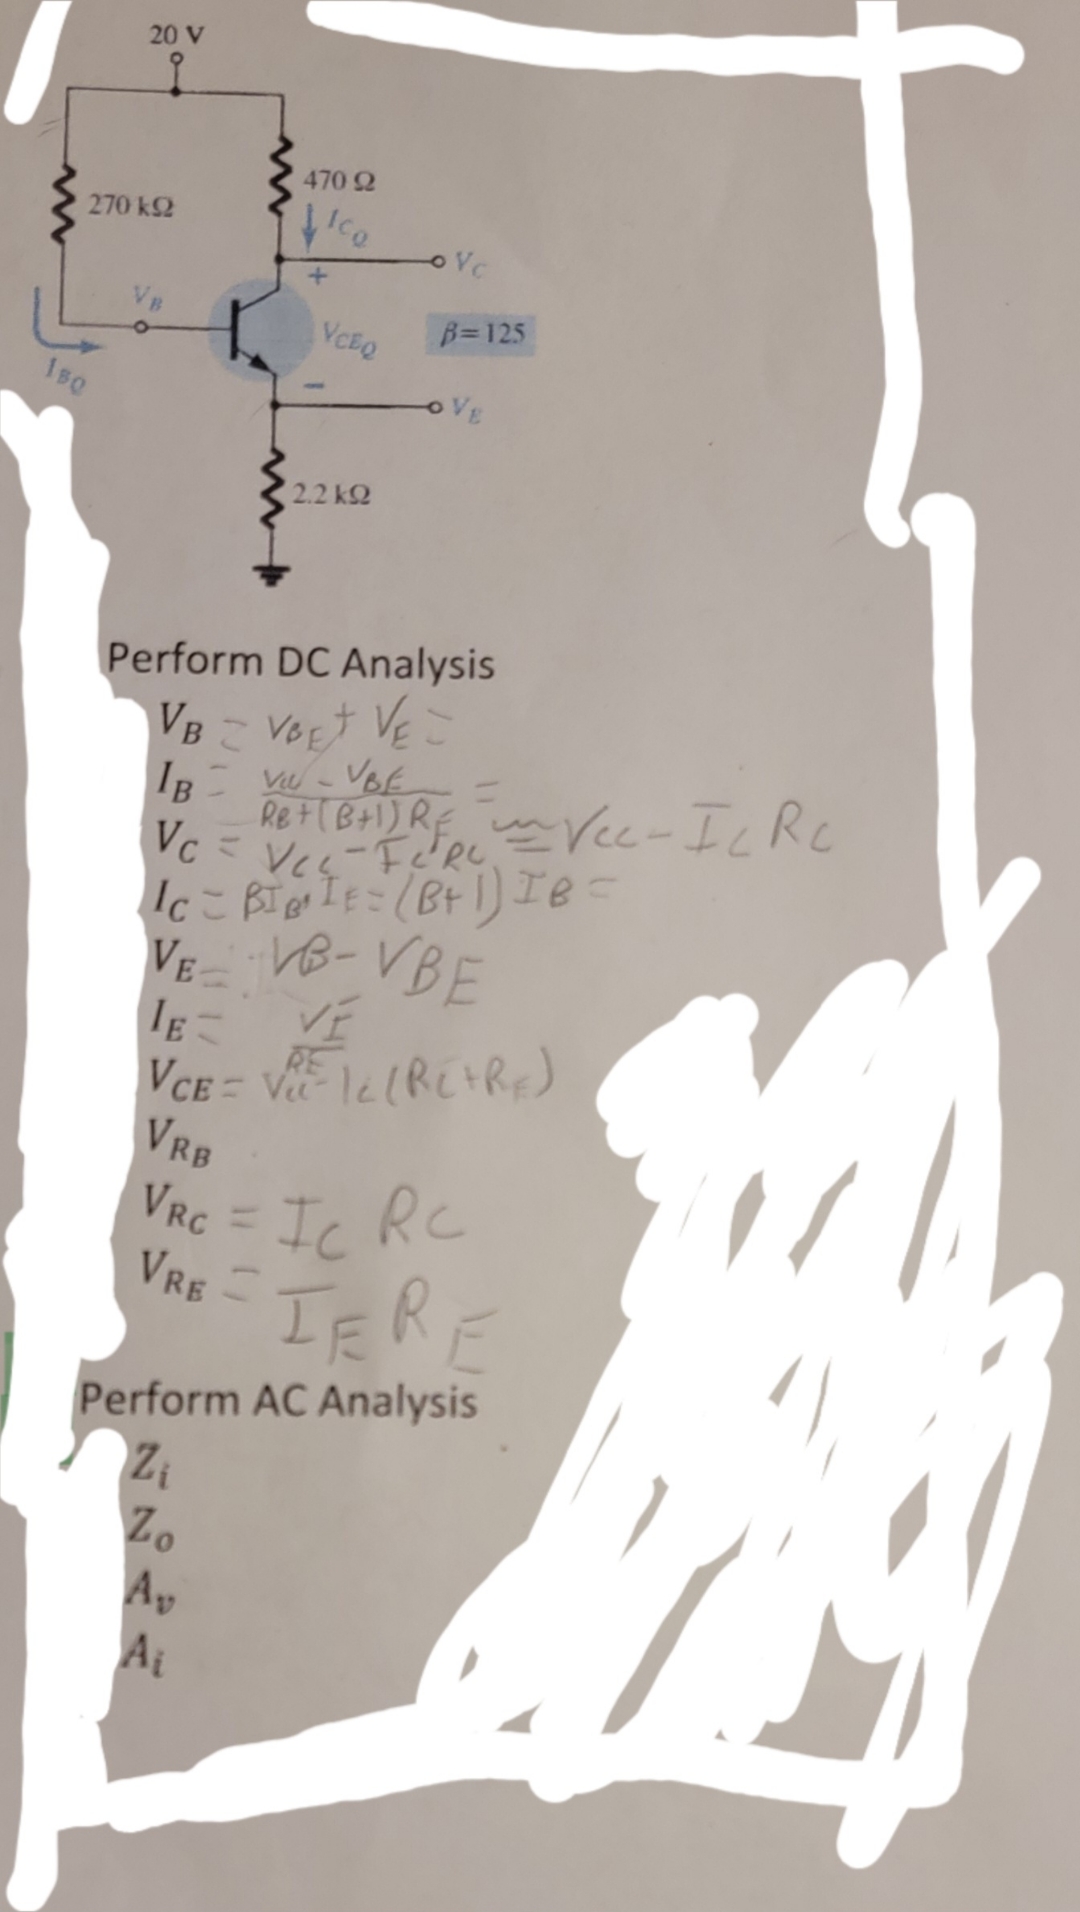 20 V
470 Ω
270 kΩ
I_CQ
V_C
+
V_B
V_CEQ
β=125
I_BQ
−
V_E
2.2 kΩ
Perform DC Analysis
V_B = V_BE + V_E =
I_B = (Vcc - V_BE) / (RB + (B+1) R_E) =
V_C = Vcc - I_C RC ≅ Vcc - I_C R_C
I_C = βI_B, I_E = (B+1) I_B =
V_E = VB - V_BE
I_E = VE / RE
V_CE = Vcc - I_C (R_C + R_E)
V_RB
V_RC = I_C R_C
V_RE = I_E R_E
Perform AC Analysis
Z_i
Z_o
A_v
A_i